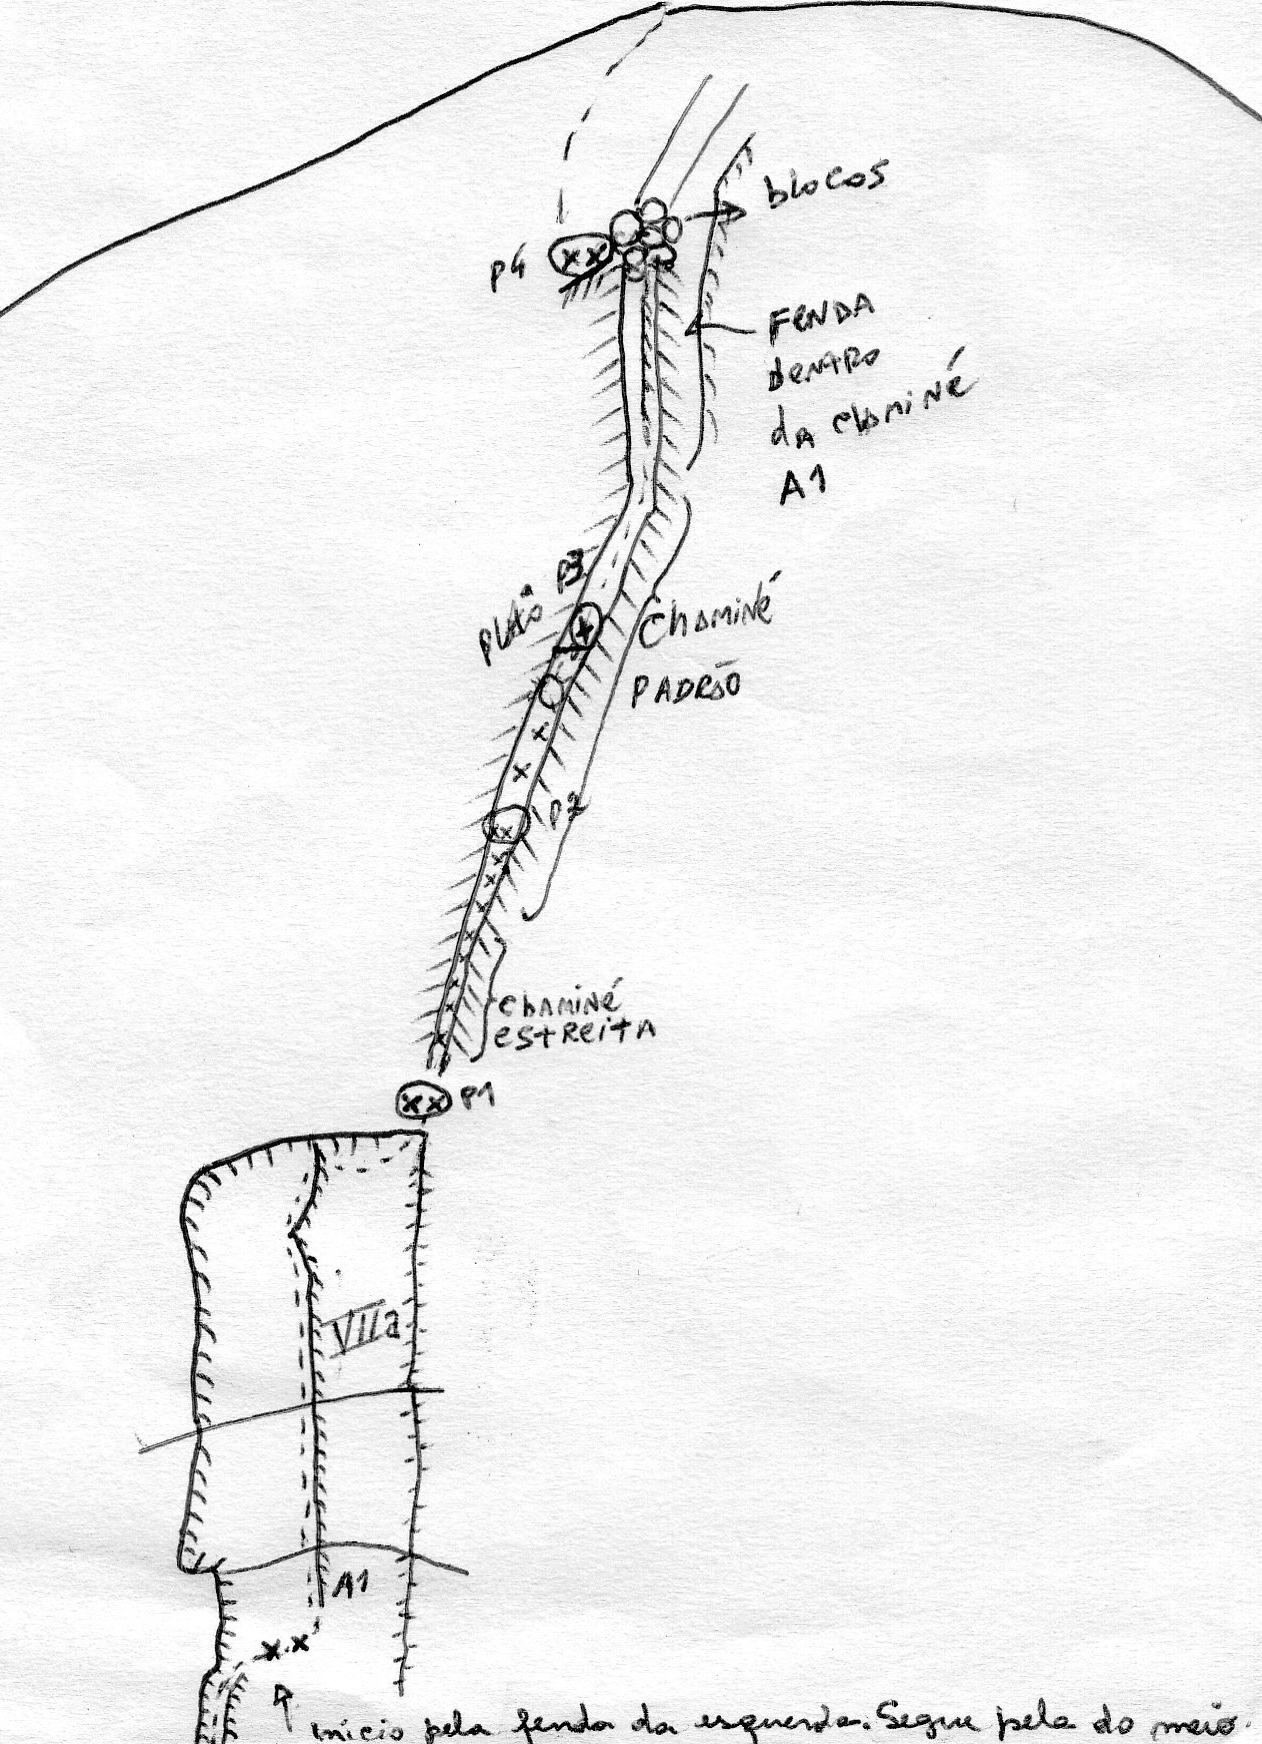 blocos
P4
FENDA
DENTRO
DA CHAMINÉ
A1
P3
PLATÔ
CHAMINÉ
PADRÃO
P2
CHAMINÉ
ESTREITA
XX P1
VIIa
A1
X.X
Início pela fenda da esquerda. Segue pela do meio.